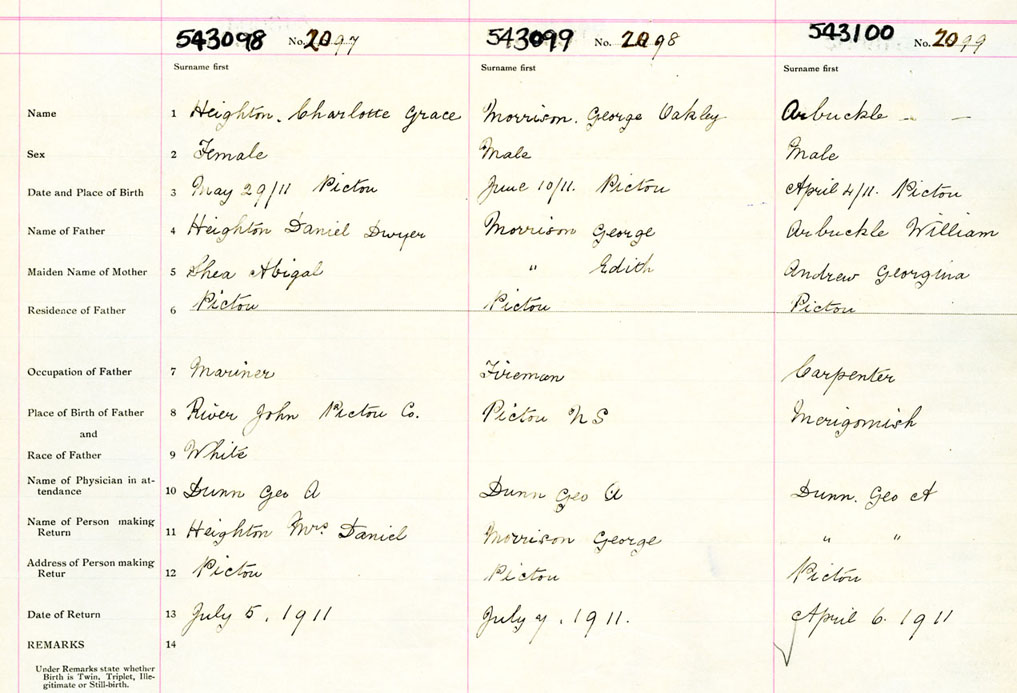 543098 No. 2097 543099 No. 2098 543100 No. 2099
Surname first Surname first Surname first
Name 1 Heighton. Charlotte Grace Morrison. George Oakley Arbuckle — —
Sex 2 Female Male Male
Date and Place of Birth 3 May 29/11 Pictou June 10/11. Pictou April 4/11. Pictou
Name of Father 4 Heighton Daniel Dwyer Morrison George Arbuckle William
Maiden Name of Mother 5 Shea Abigal " Edith Andrew Georgina
Residence of Father 6 Pictou Pictou Pictou
Occupation of Father 7 Mariner Fireman Carpenter
Place of Birth of Father 8 River John Pictou Co. Pictou N S Merigomish
and
Race of Father 9 White
Name of Physician in at-
tendance 10 Dunn Geo A Dunn Geo A Dunn. Geo A
Name of Person making
Return 11 Heighton Mrs. Daniel Morrison George " "
Address of Person making
Retur 12 Pictou Pictou Pictou
Date of Return 13 July 5, 1911 July 7, 1911. April 6. 1911
REMARKS 14
Under Remarks state whether
Birth is Twin, Triplet, Ille-
gitimate or Still-birth.